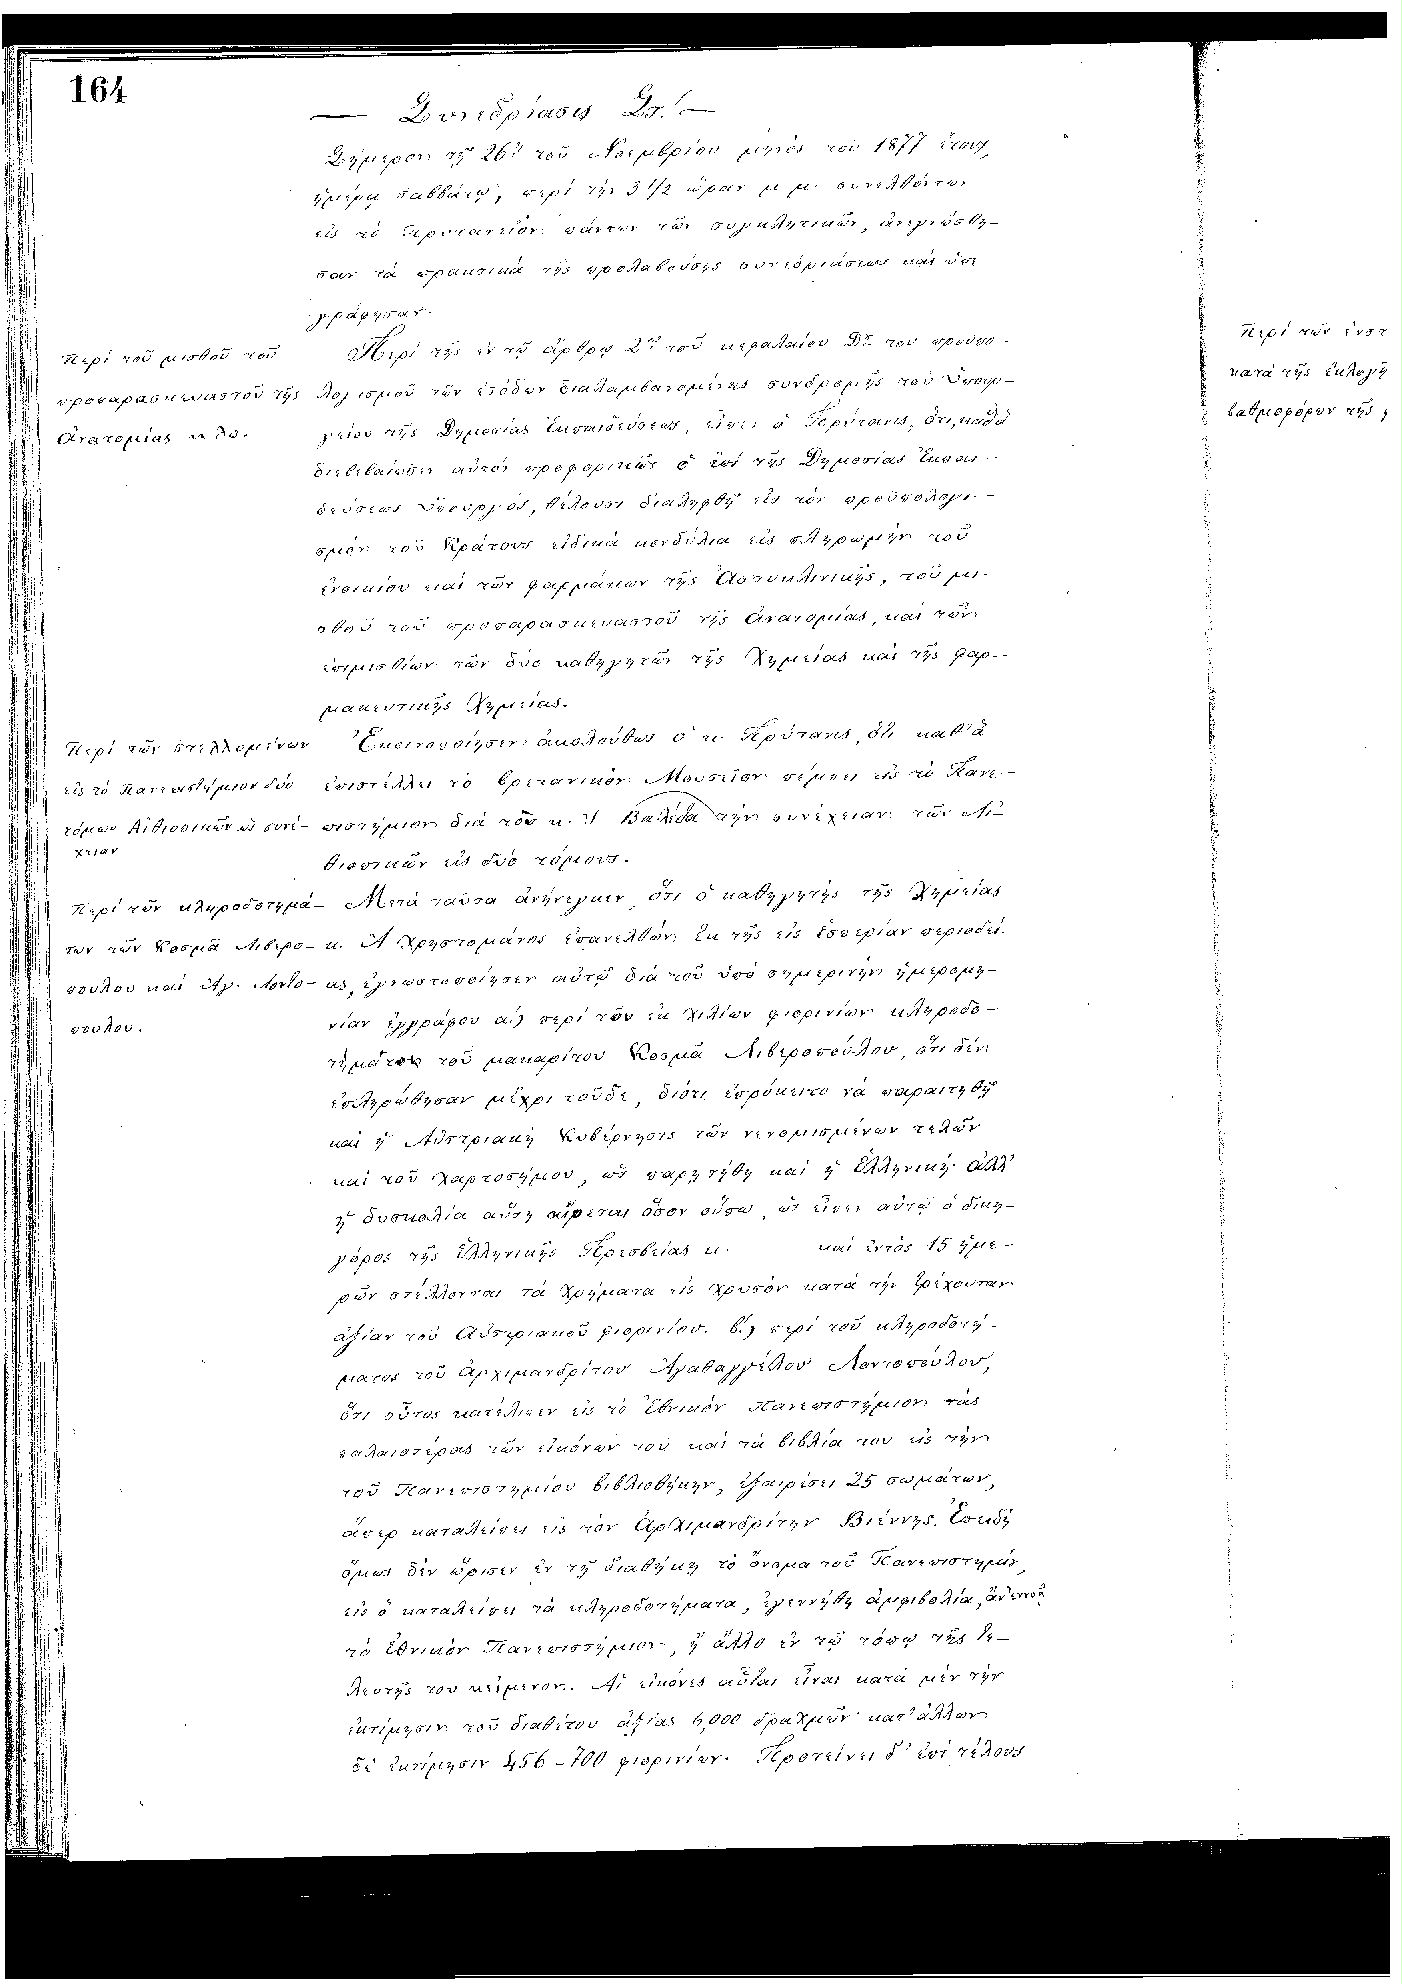 164
— Συνεδρίασις Στ΄. —
Σήμερον τῇ 26ῃ τοῦ Νοεμβρίου μηνὸς τοῦ 1877 ἔτους,
ἡμέρᾳ σαββάτῳ, περὶ τὴν 3 1/2 ὥραν μ. μ. συνελθόντων
εἰς τὸ Πρυτανεῖον πάντων τῶν συγκλητικῶν, ἀνεγνώσθη-
σαν τὰ πρακτικὰ τῆς προλαβούσης συνεδριάσεως καὶ ὑπε
γράφησαν.
Περὶ τοῦ μισθοῦ τοῦ
προπαρασκευαστοῦ τῆς
Ἀνατομίας κ λπ.
Περὶ τῆς ἐν τῷ ἄρθρῳ 2ῳ τοῦ κεφαλαίου Δῳ του προϋπο-
λογισμοῦ τῶν ἐσόδων διαλαμβανομένης συνδρομῆς τοῦ Ὑπουρ-
γείου τῆς Δημοσίας Ἐκπαιδεύσεως, εἶπεν ὁ Πρύτανις, ὅτι, καθὰ
διεβεβαίωσεν αὐτὸν προφορικῶς ὁ ἐπὶ τῆς Δημοσίας Ἐκπαι-
δεύσεως Ὑπουργός, θέλουσι διαληφθῆ εἰς τὸν προϋπολογι-
σμὸν τοῦ Κράτους εἰδικὰ κονδύλια εἰς πληρωμὴν τοῦ
ἐνοικίου καὶ τῶν φαρμάκων τῆς Ἀστυκλινικῆς, τοῦ μι-
σθοῦ τοῦ προπαρασκευαστοῦ τῆς Ἀνατομίας, καὶ τῶν
ἐπιμισθίων τῶν δύο καθηγητῶν τῆς Χημείας καὶ τῆς φαρ-
μακευτικῆς Χημείας.
Περὶ τῶν στελλομένων
εἰς τὸ Πανεπιστήμιον δύο
τόμων Αἰθιοπικῶν ὡς συνέ-
χειαν
Ἐκοινοποίησεν ἀκολούθως ὁ κ. Πρύτανις, ὅτι καθ' ἃ
ἐπιστέλλει τὸ βρετανικὸν Μουσεῖον πέμπει εἰς τὸ Πανε-
πιστήμιον διὰ τοῦ κ. Βαλέδα τὴν συνέχειαν τῶν Αἰ-
θιοπικῶν εἰς δύο τόμους.
Περὶ τῶν κληροδοτημά-
των τῶν Κοσμᾶ Λιβερο-
πούλου καὶ Ἀγ. Λοντο-
πούλου.
Μετὰ ταῦτα ἀνήνεγκεν, ὅτι ὁ καθηγητὴς τῆς Χημείας
κ. Α Χρηστομάνος ἐπανελθὼν ἐκ τῆς εἰς Ἑσπερίαν περιοδεί-
ας, ἐγνωστοποίησεν αὐτῷ διὰ τοῦ ὑπὸ σημερινὴν ἡμερομη-
νίαν ἐγγράφου α.) περὶ τῶν ἐκ χιλίων φιορινίων κληροδο-
τημάτων τοῦ μακαρίτου Κοσμᾶ Λιβεροπούλου, ὅτι δὲν
ἐπληρώθησαν μέχρι τοῦδε, διότι ἐπρόκειτο νὰ παραιτηθῇ
καὶ ἡ Αὐστριακὴ Κυβέρνησις τῶν νενομισμένων τελῶν
καὶ τοῦ χαρτοσήμου, ὡς παρῃτήθη καὶ ἡ Ἑλληνική· ἀλλ'
ἡ δυσκολία αὕτη αἴρεται ὅσον οὔπω, ὡς εἶπεν αὐτῷ ὁ δικη-
γόρος τῆς Ἑλληνικῆς Πρεσβείας κ. καὶ ἐντὸς 15 ἡμε-
ρῶν στέλλονται τὰ χρήματα εἰς χρυσὸν κατὰ τὴν τρέχουσαν
ἀξίαν τοῦ Αὐστριακοῦ φιορινίου. β.) περὶ τοῦ κληροδοτή-
ματος τοῦ ἀρχιμανδρίτου Ἀγαθαγγέλου Λοντοπούλου,
ὅτι οὗτος κατέλιπεν εἰς τὸ Ἐθνικὸν Πανεπιστήμιον τὰς
παλαιοτέρας τῶν εἰκόνων του καὶ τὰ βιβλία του εἰς τὴν
τοῦ Πανεπιστημίου βιβλιοθήκην, ἐξαιρέσει 25 σωμάτων,
ἅπερ καταλείπει εἰς τὸν Ἀρχιμανδρίτην Βιέννης. Ἐπειδὴ
ὅμως δὲν ὥρισεν ἐν τῇ διαθήκῃ τὸ ὄνομα τοῦ Πανεπιστημίου,
εἰς ὃ καταλείπει τὰ κληροδοτήματα, ἐγεννήθη ἀμφιβολία, ἂν ἐννοῇ
τὸ Ἐθνικὸν Πανεπιστήμιον, ἢ ἄλλο ἐν τῷ τόπῳ τῆς τε-
λευτῆς του κείμενον. Αἱ εἰκόνες αὗται εἶναι κατὰ μὲν τὴν
ἐκτίμησιν τοῦ διαθέτου ἀξίας 6,000 δραχμῶν κατ' ἄλλων
δὲ ἐκτίμησιν 456-700 φιορινίων. Προτείνει δ' ἐπὶ τέλους
Περὶ τῶν ἐνστ
κατὰ τῆς ἐκλογῆ
βαθμοφόρων τῆς